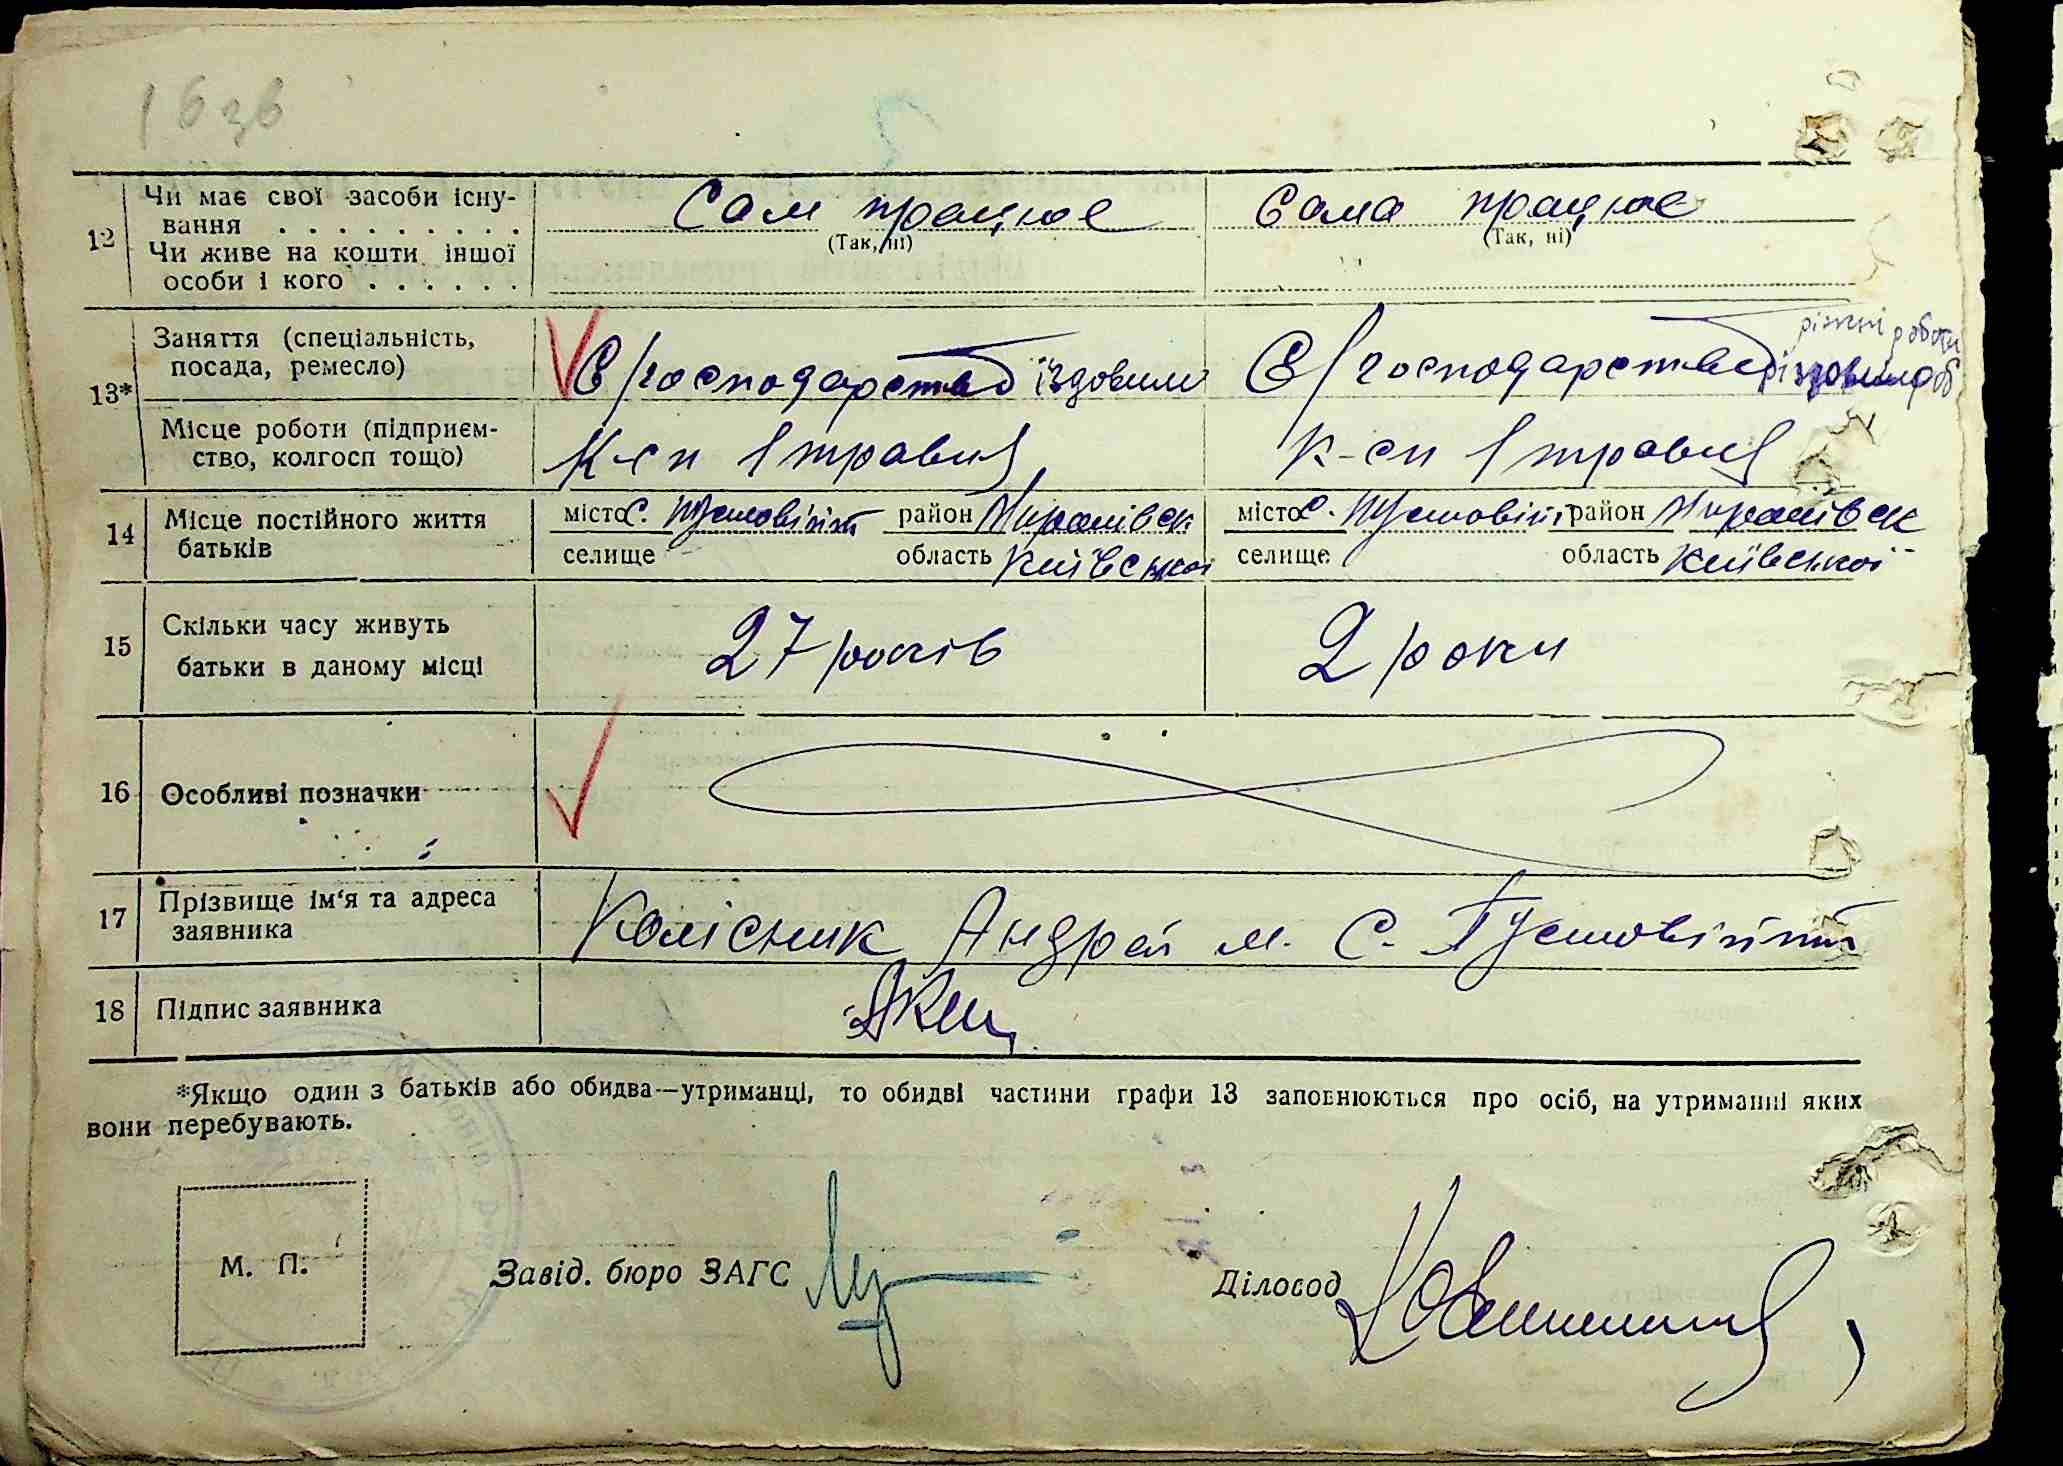 16 зв
12 Чи має свої засоби існу-
вання . . . . . . . . . Сам працює Сама працює
(Так, ні) (Так, ні)
Чи живе на кошти іншої
особи і кого . . . . . .
різні роботи
13* Заняття (спеціальність,
посада, ремесло) С/господарство їздовим С/господарство
Місце роботи (підприєм-
ство, колгосп тощо) К-сп 1 травня К-сп 1 травня
14 Місце постійного життя
батьків
місто с. Пустовіти район Миронівськ місто с. Пустовіти район Миронівськ
селище область Київської селище область Київської
15 Скільки часу живуть
батьки в даному місці 27 років 2 роки
16 Особливі позначки
17 Прізвище ім'я та адреса
заявника Колісник Андрей м. с. Пустовіти
18 Підпис заявника
*Якщо один з батьків або обидва—утриманці, то обидві частини графи 13 заповнюються про осіб, на утриманні яких
вони перебувають.
М. П.
Завід. бюро ЗАГС Діловод